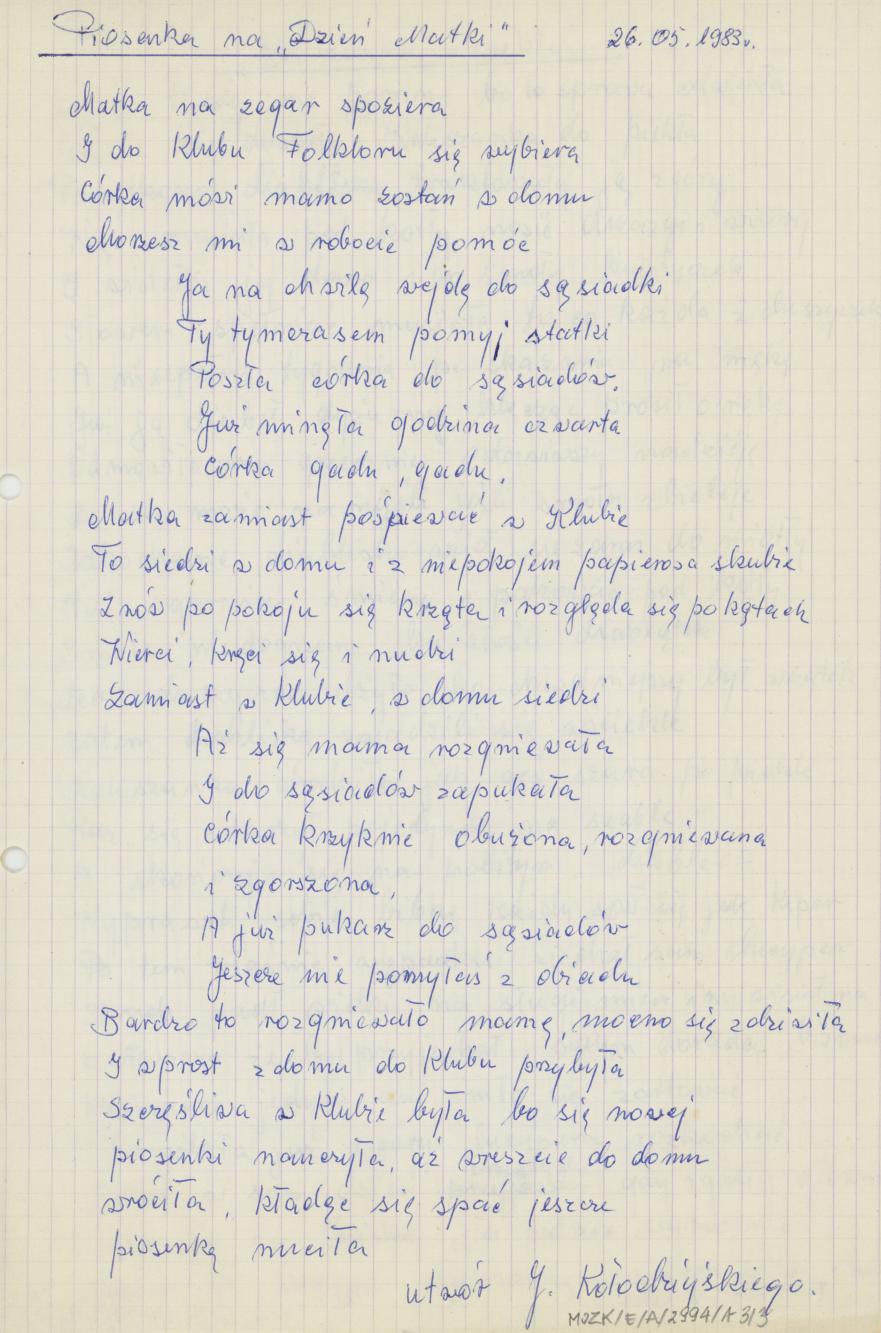 Piosenka na „Dzień Matki" 26.05.1983r.
Matka na zegar spoziera
I do Klubu Folkloru się wybiera
Córka mówi mamo zostań w domu
Morzesz mi w robocie pomóc
Ja na chwilę wejdę do sąsiadki
Ty tymczasem pomyj statki
Poszła córka do sąsiadów.
Już minęła godzina czwarta
Córka gadu, gadu.
Matka zamiast pośpiewać w Klubie
To siedzi w domu i z niepokojem papierosa skubie
Znów po pokoju się krząta i rozgląda się po kątach
Wierci, kręci się i nudzi
Zamiast w Klubie, w domu siedzi
Aż się mama rozgniewała
I do sąsiadów zapukała
Córka krzyknie oburzona, rozgniewana
i zgorszona,
A już pukasz do sąsiadów
Jeszcze nie pomyłaś z obiadu
Bardzo to rozgniewało mamę, mocno się zdziwiła
I wprost z domu do Klubu przybyła
Szczęśliwa w Klubie była bo się nowej
piosenki nauczyła, aż wreszcie do domu
wróciła, kładąc się spać jeszcze
piosenkę nuciła
utwór J. Kołodzińskiego.
MOZK/E/A/2994/A 3/3